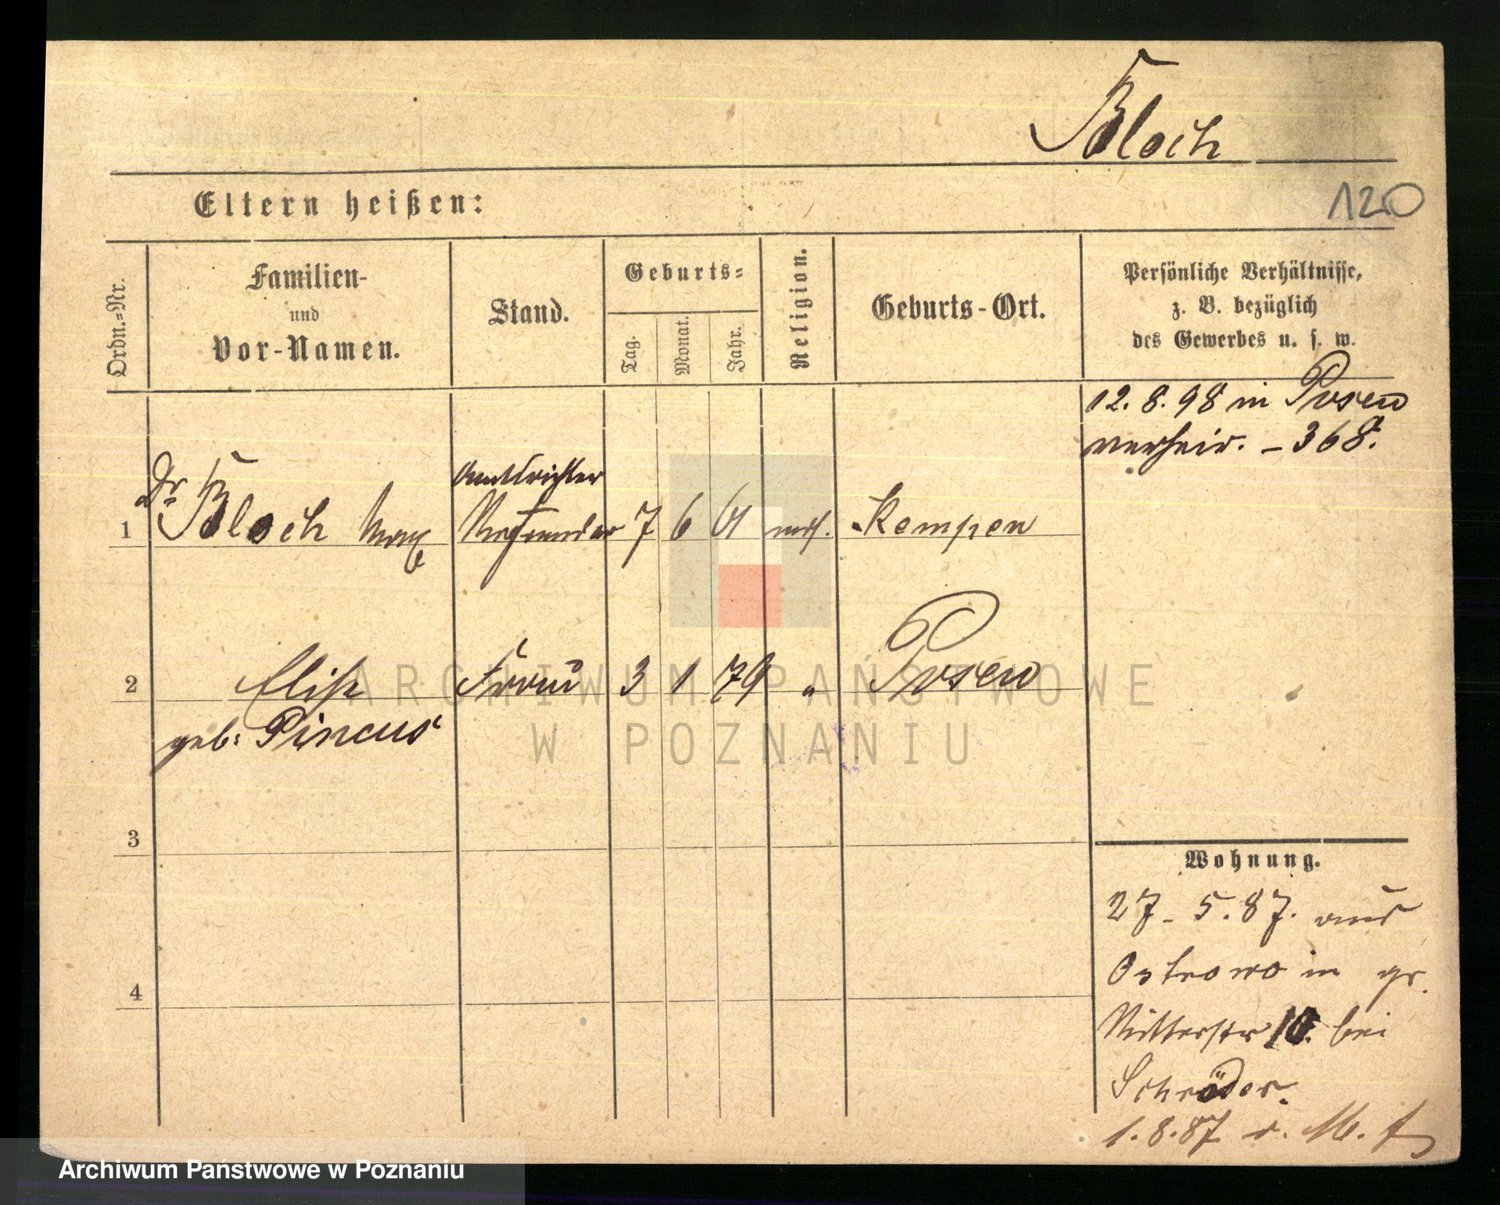 Bloch
120
Eltern heißen:
Ordn.=Nr.
Familien-
und
Vor-Namen.
Stand.
Geburts=
Tag.
Monat.
Jahr.
Religion.
Geburts-Ort.
Persönliche Verhältnisse,
z. B. bezüglich
des Gewerbes u. s. w.
12. 8. 98 in Posen
verheir. - 368.
Amtsrichter
1 Dr Bloch Max Referendar 7 6 61 mos. Kempen
2 Elise Frau 3 1 79 " Posen
geb: Pincus
3
4
Wohnung.
27. 5. 87. aus
Ostrowo in gr.
Ritterstr 10. bei
Schröder.
1. 8. 87
ARCHIWUM PAŃSTWOWE
W POZNANIU
Archiwum Państwowe w Poznaniu